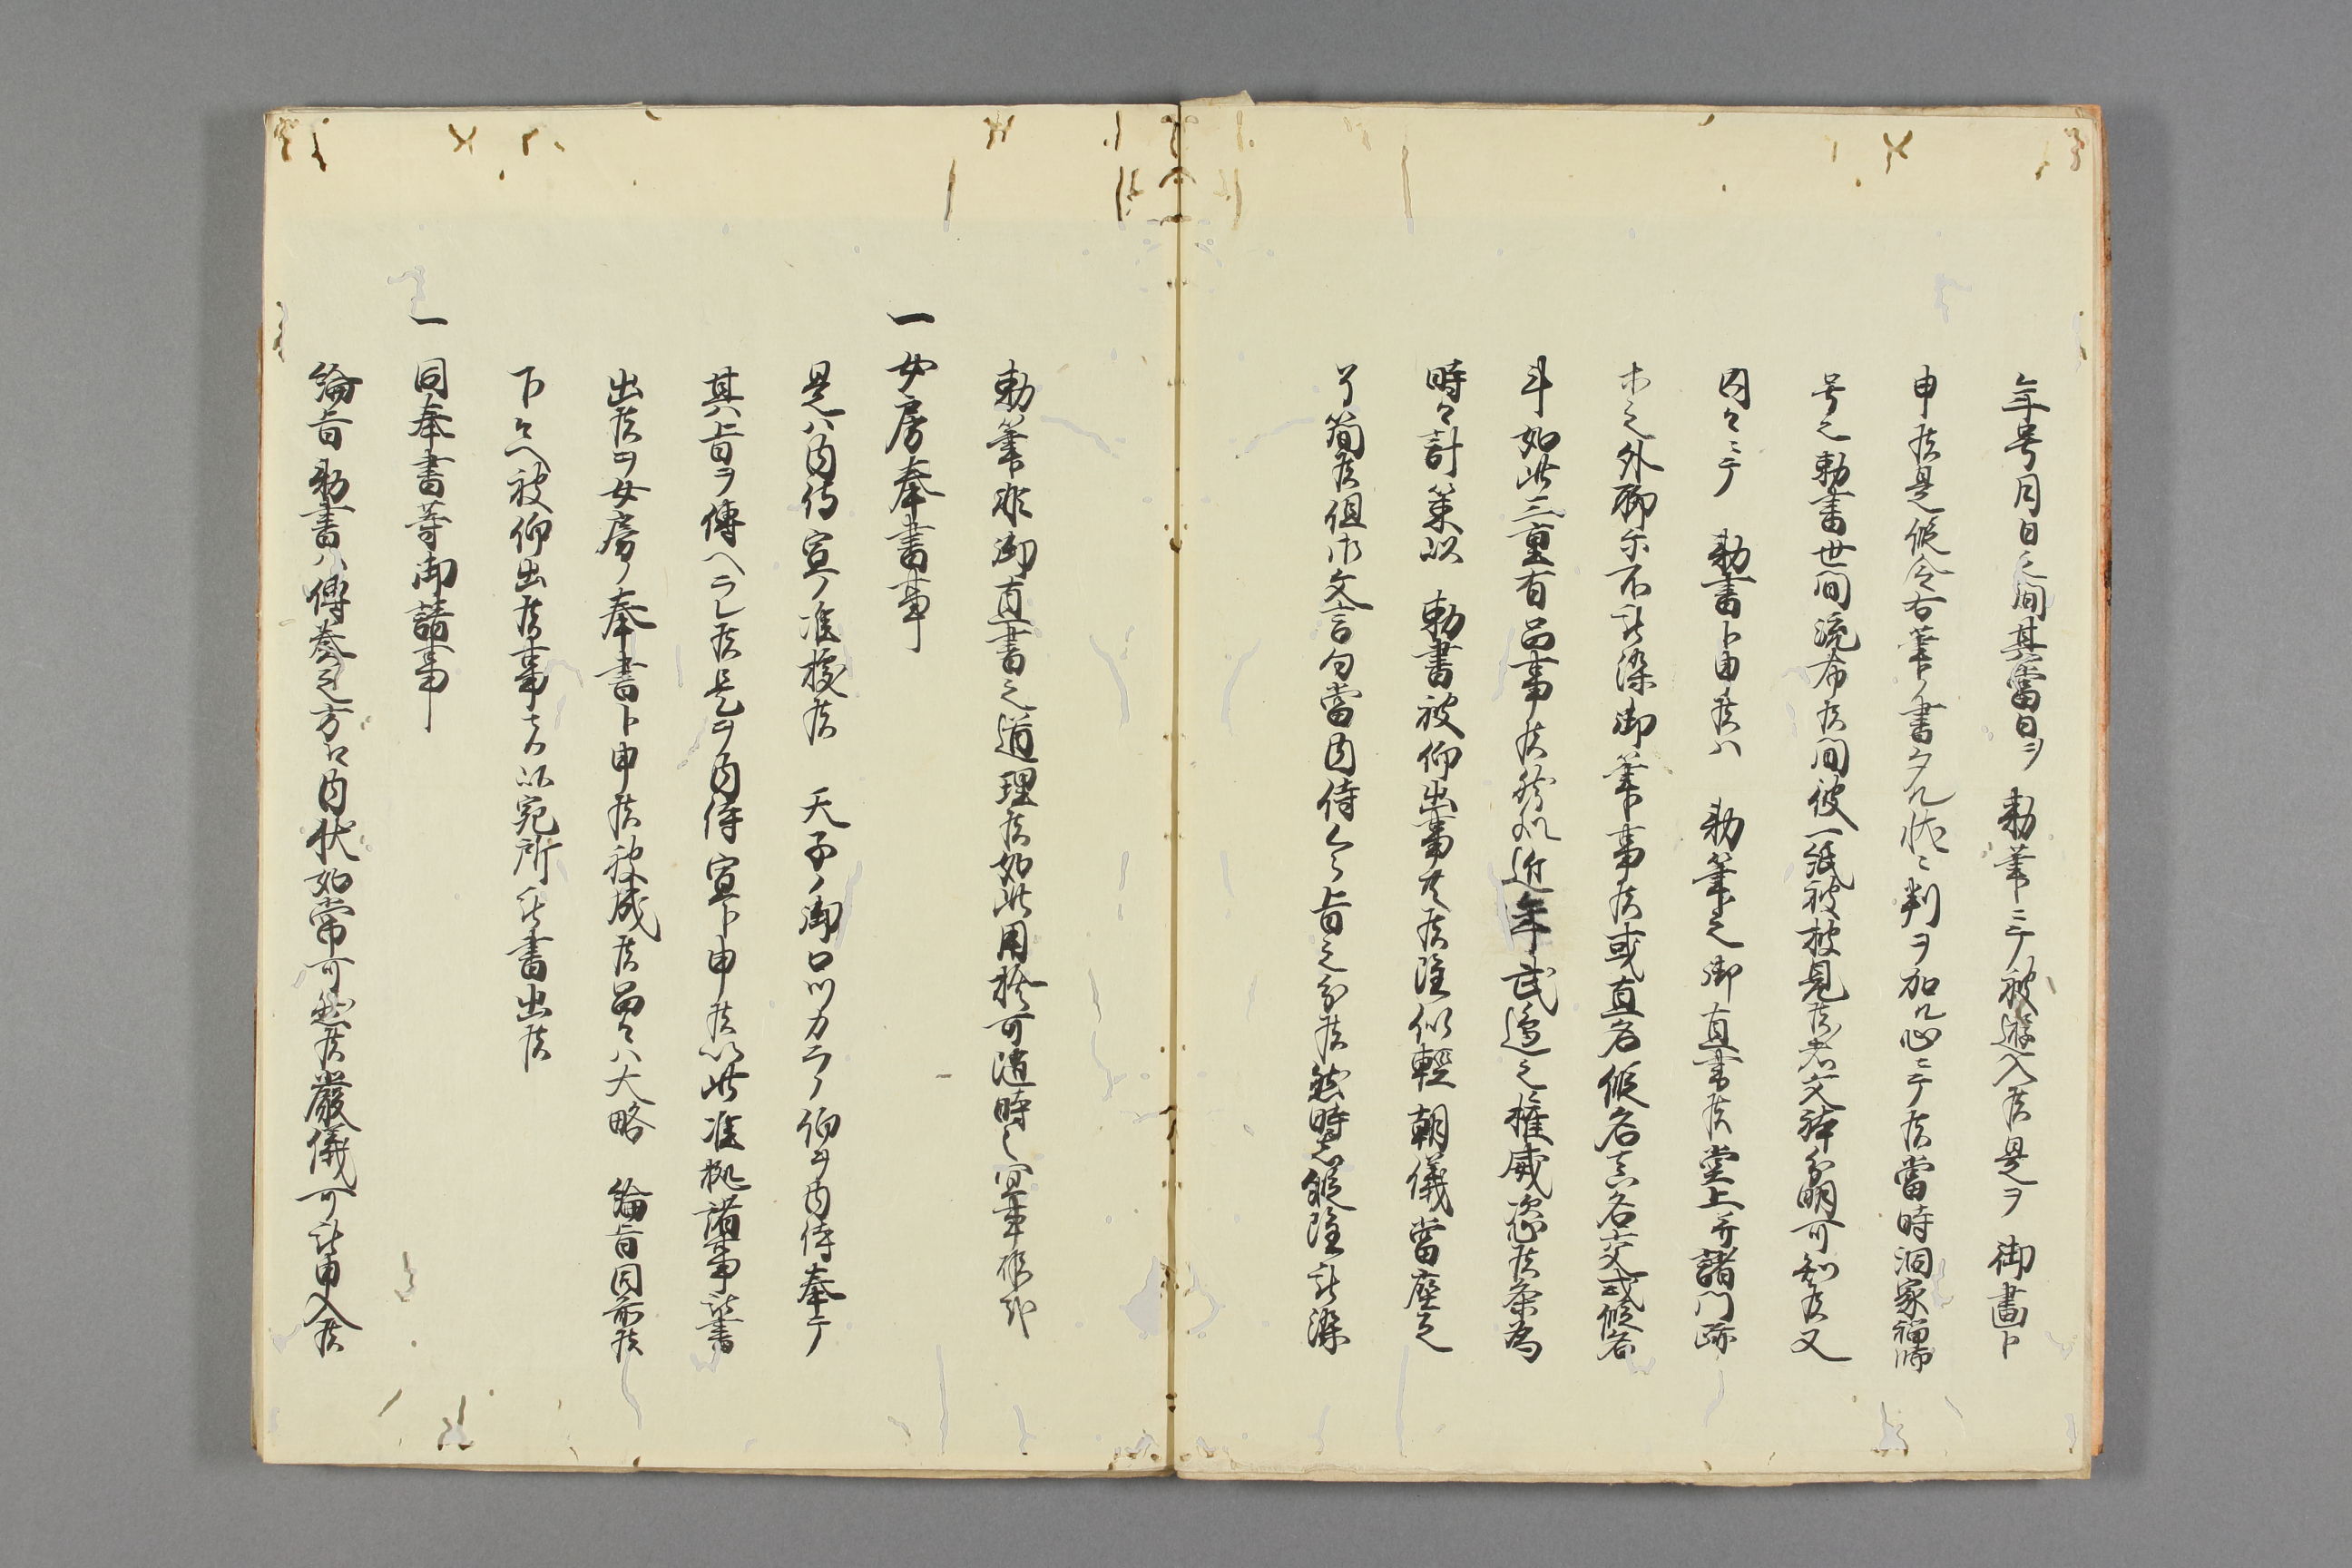 年号月日之間其當日ヲ 勅筆ニテ被遊入候是ヲ 御畫ト
申候是假令右筆ノ書タル状ニ判ヲ加ル心ニテ候當時洞家禅師
号之勅書世間流布候間彼一紙被披見候者文躰分明可知候又
内々ニテ 勅書ト申候ハ 勅筆之御直書候堂上并諸門跡
ホ之外聊尓不被染御筆事候或直名假名真名交或假名
斗如此三重有品事候 近年武邊之権威恣候条為
時々計策以 勅書被仰出事共候陰似輕朝儀當座之
了簡候但以文言勾當内侍 旨之分候然時者縦陰被染
勅筆非御直書之道理候如此用捨可随時之宜事
一 女房奉書事
是ハ内侍宣ノ准據候 天子ノ御口ツカラノ仰ヲ内侍奉テ
其旨ヲ傳ヘラレ候是ヲ内侍宣ト申候以此准據諸事被書
出候ヲ女房ノ奉書ト申候被成候品々ハ大略 綸旨同前候
下々ヘ被仰出候事 宛所被書出候
一 同奉書等御請事
綸旨勅書ハ傳奏之方江内状如常可然候嚴儀可被申入候